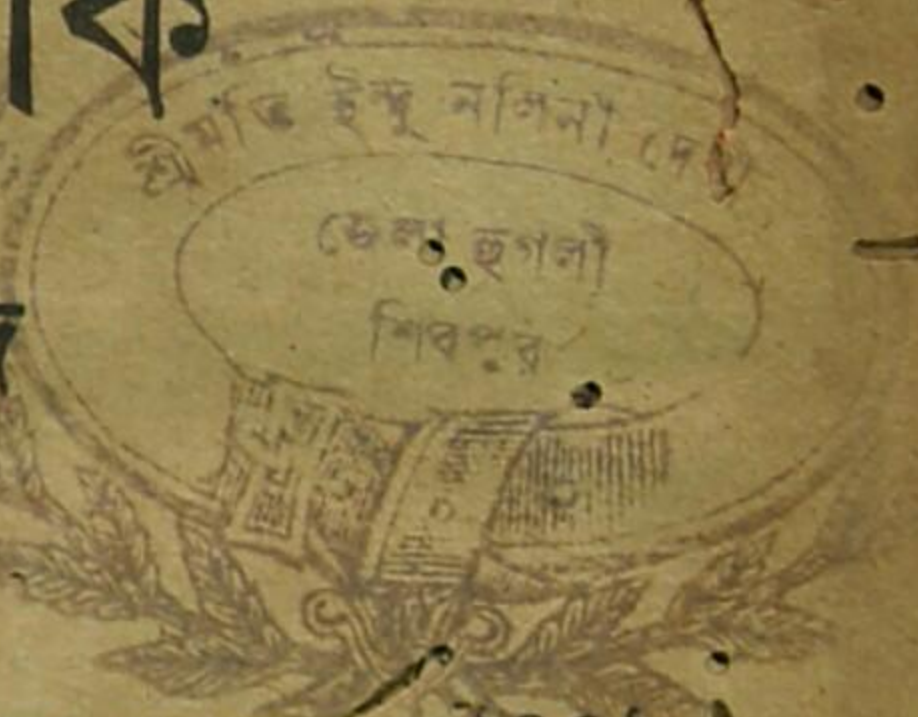 কি
শ্রীমতি ইন্দু নলিনী দেবী
জেলা হুগলী
শিবপুর